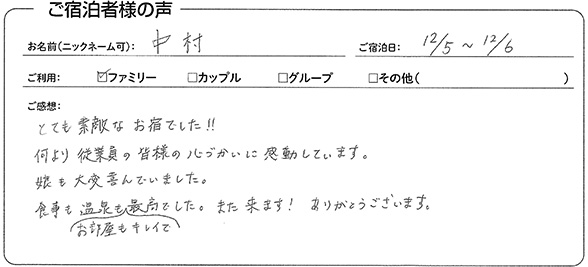 ご宿泊者様の声
お名前(ニックネーム可): 中村 ご宿泊日: 12/5 ~ 12/6
ご利用: ☑ファミリー □カップル □グループ □その他( )
ご感想:
とても 素敵な お宿でした!!
何より 従業員の 皆様の 心づかいに 感動しています。
娘も 大変 喜んでいました。
食事も 温泉も最高でした。 また 来ます! ありがとうございます。
お部屋もキレイで